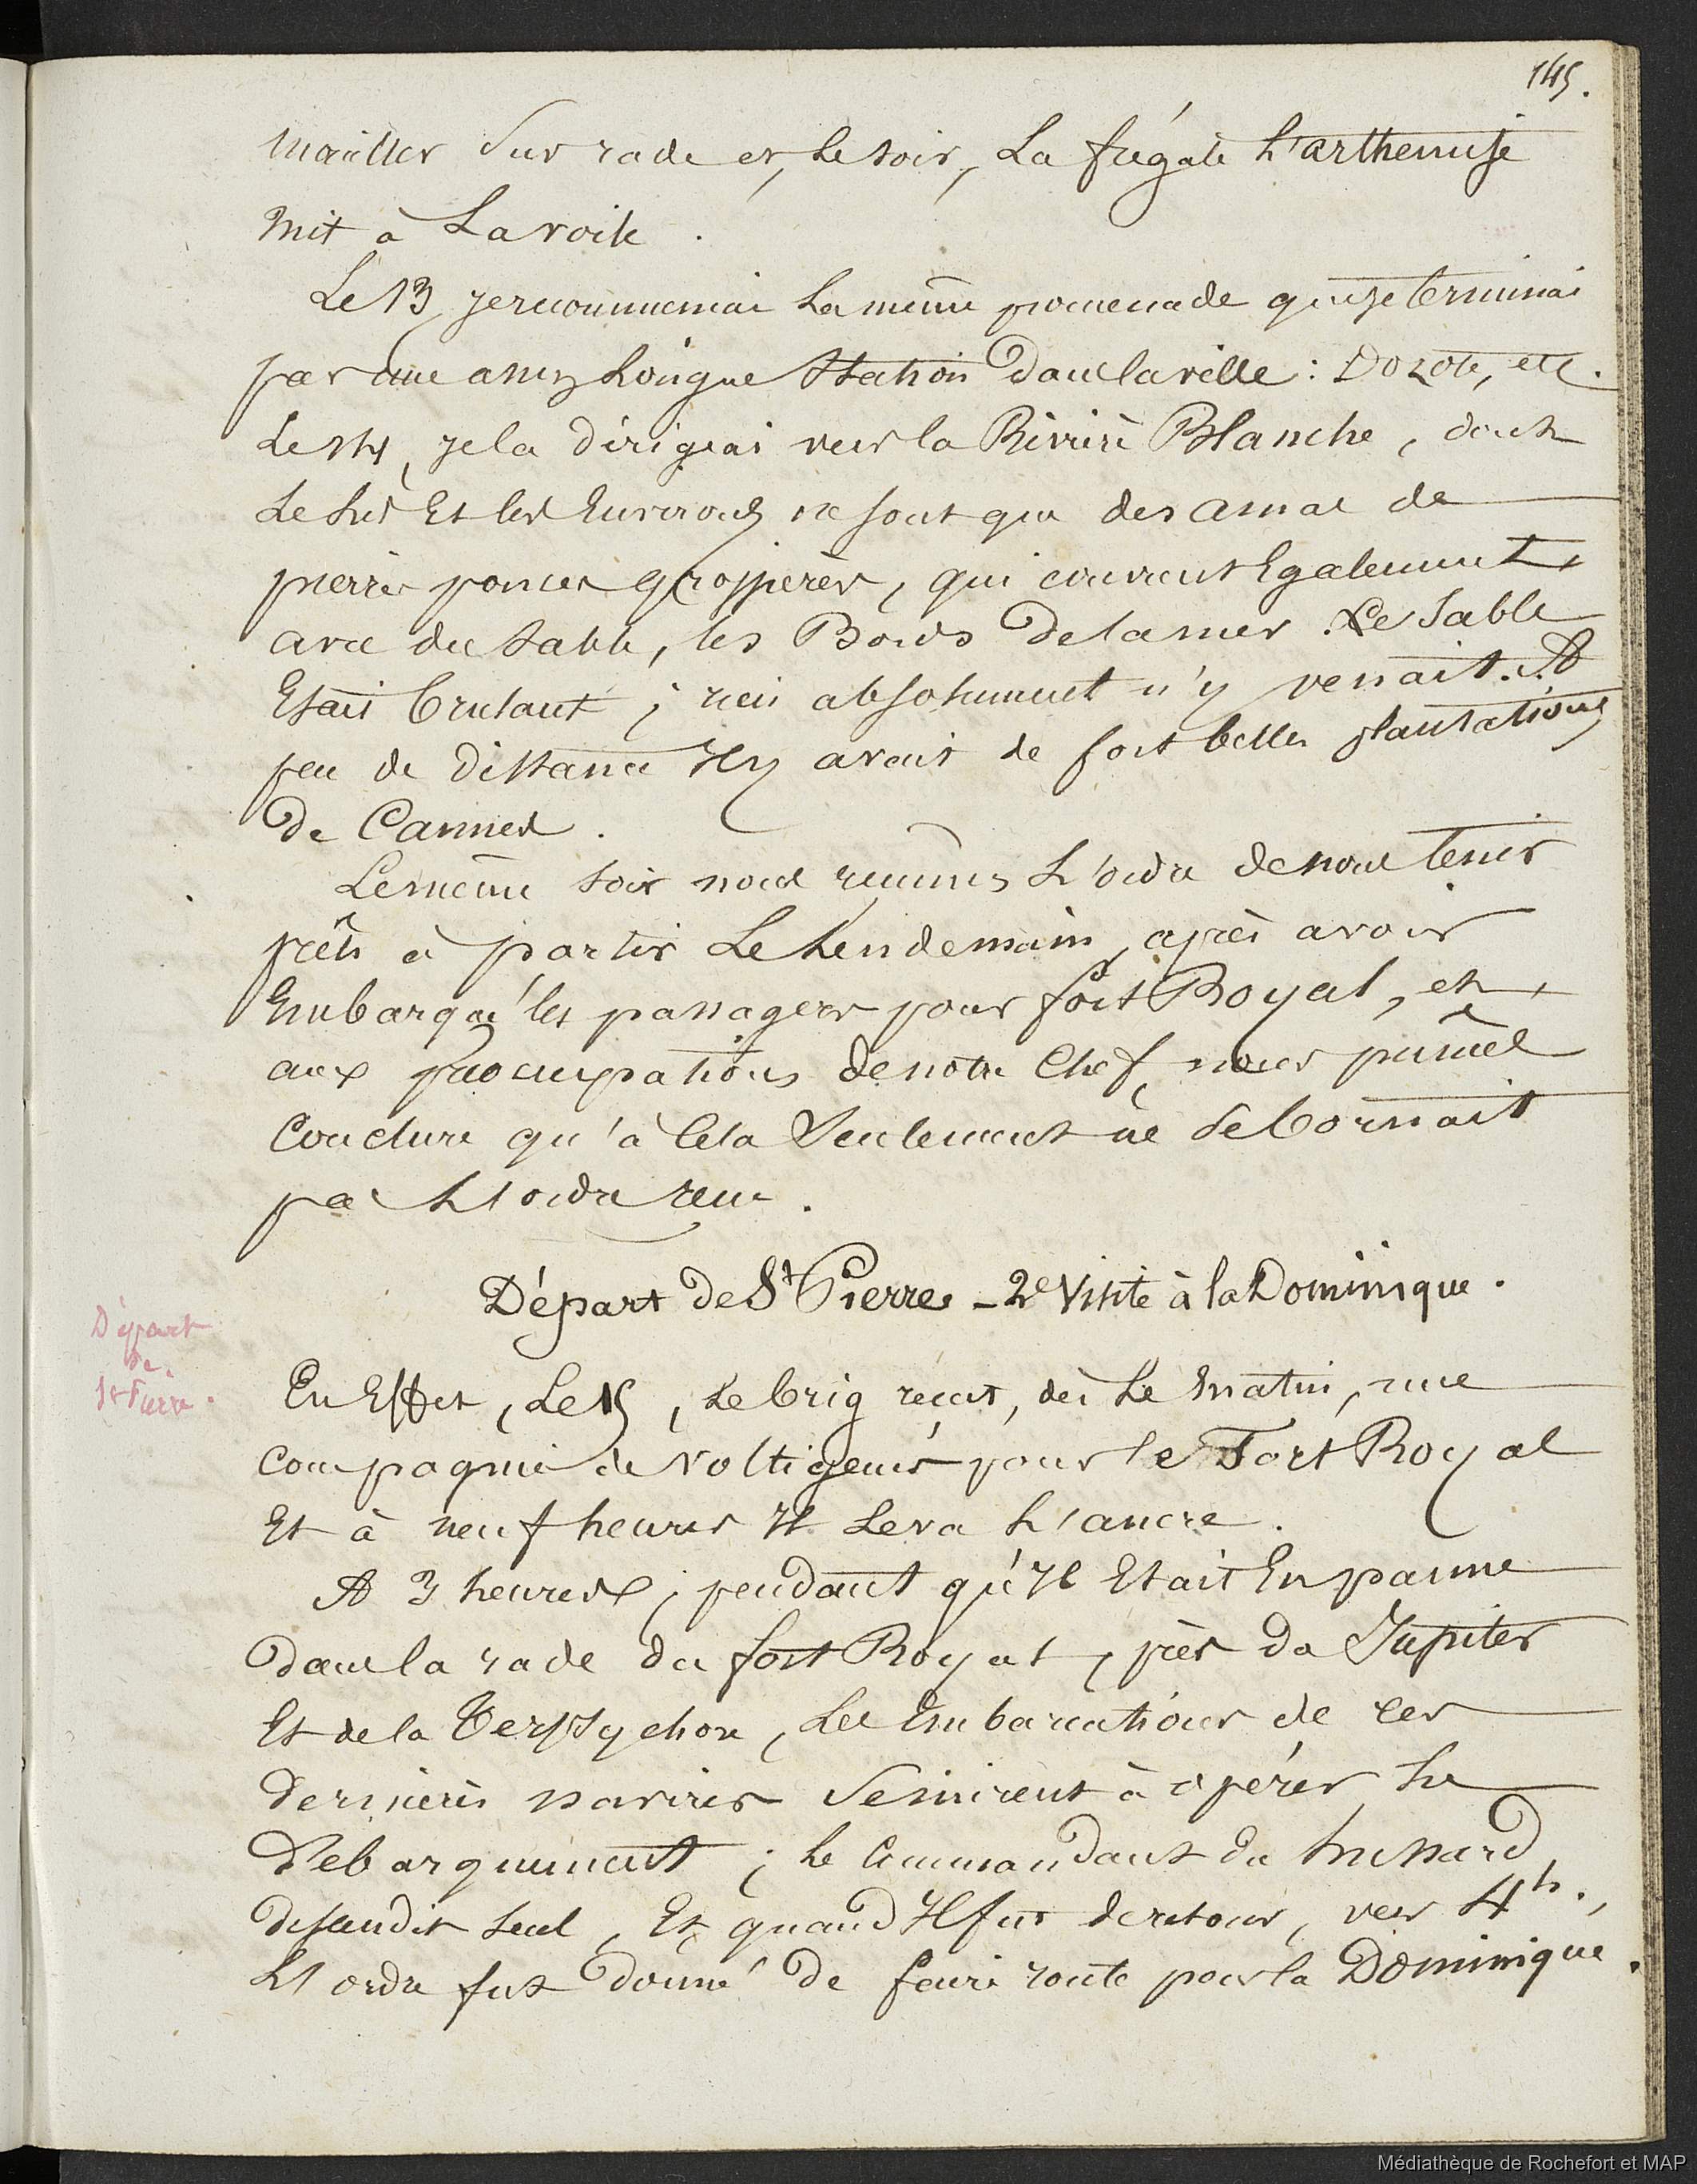 145.
mouiller sur rade et, le soir, La frégate L'arthemise
mit à La voile.
Le 13, je recommençai La même promenade que je terminai
par une assez Longue Station dans la ville : Dozote, etc.
Le 14, je la dirigeai vers la Rivière Blanche, dont
Le Lit Et les Environs ne sont que des amas de
pierres ponces grossières, qui couvrent Egalement,
avec du sable, les Bords de la mer. Le Sable
Etait brulant ; rien absolument n'y venait. A
peu de distance Il y avait de fort belles plantations
de Cannes.
Le même soir nous reçumes L'ordre de nous tenir
prêts à partir Le Lendemain, après avoir
Embarqué les passagers pour fort Royal, et,
aux préocupations de notre Chef, nous pumes
Conclure qu'à Cela Seulement ne se bornait
pas L'ordre reçu.
Départ de St Pierre - 2e Visite à la Dominique.
Départ
de
St Pierre.
En Effet, Le 15, Le brig reçut, dès Le matin, une
compagnie de Voltigeurs pour le Fort Royal
Et à neuf heures Il Leva L'ancre.
A 3 heures, pendant qu'Il Etait En panne
dans la rade du fort Royal, près du Jupiter
Et de la Terpsychore, Les Embarcations de ces
derniers navires se mirent à opérer Le
Débarquement ; Le Commandant du hussard
descendit seul, Et, quand Il fut de retour, vers 4h.,
L'ordre fut donné de faire route pour la Dominique.
Médiathèque de Rochefort et MAP